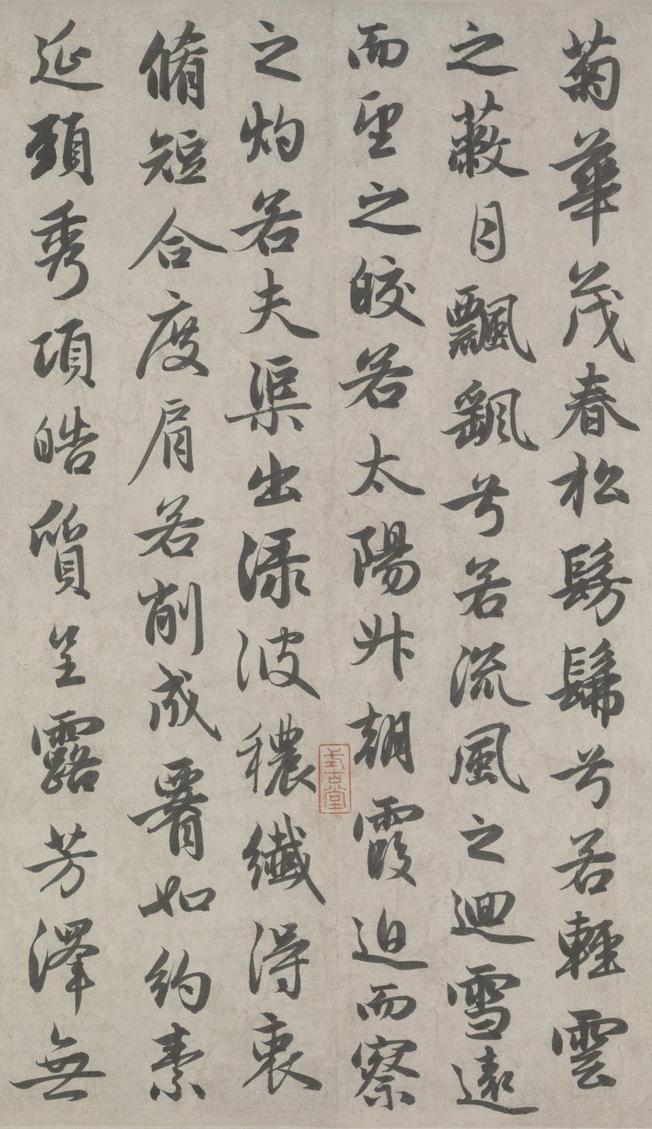 菊華茂春松髣髴兮若輕雲
之蔽月飄颻兮若流風之迴雪遠
而望之皎若太陽升朝霞迫而察
之灼若夫渠出淥波穠纖得衷
脩短合度肩若削成署如約素
延頸秀項皓質呈露芳澤無